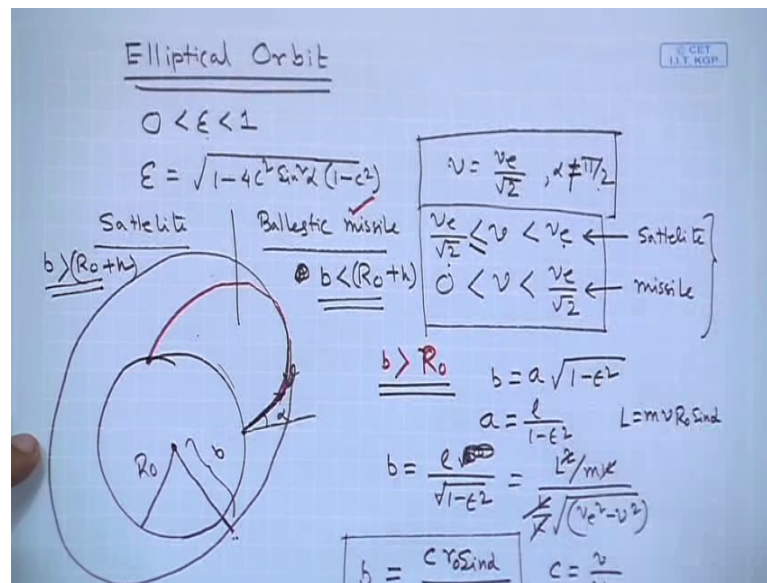 Elliptical Orbit
© CET
I.I.T. KGP
0 < ε < 1
ε = √(1-4c² Sin²α (1-c²))
v = ve/√2 , α ≠ π/2
Sattelite
Ballestic missile
b > (R₀+h)
b < (R₀+h)
ve/√2 ≤ v < ve ← Sattelite
0 < v < ve/√2 ← missile
b > R₀
b = a √(1-ε²)
α
a = l/(1-ε²)
L = m v R₀ Sinα
R₀
b
b = l/√(1-ε²) = L²/mk
√(ve²-v²)
b = c r₀ Sinα
c = v